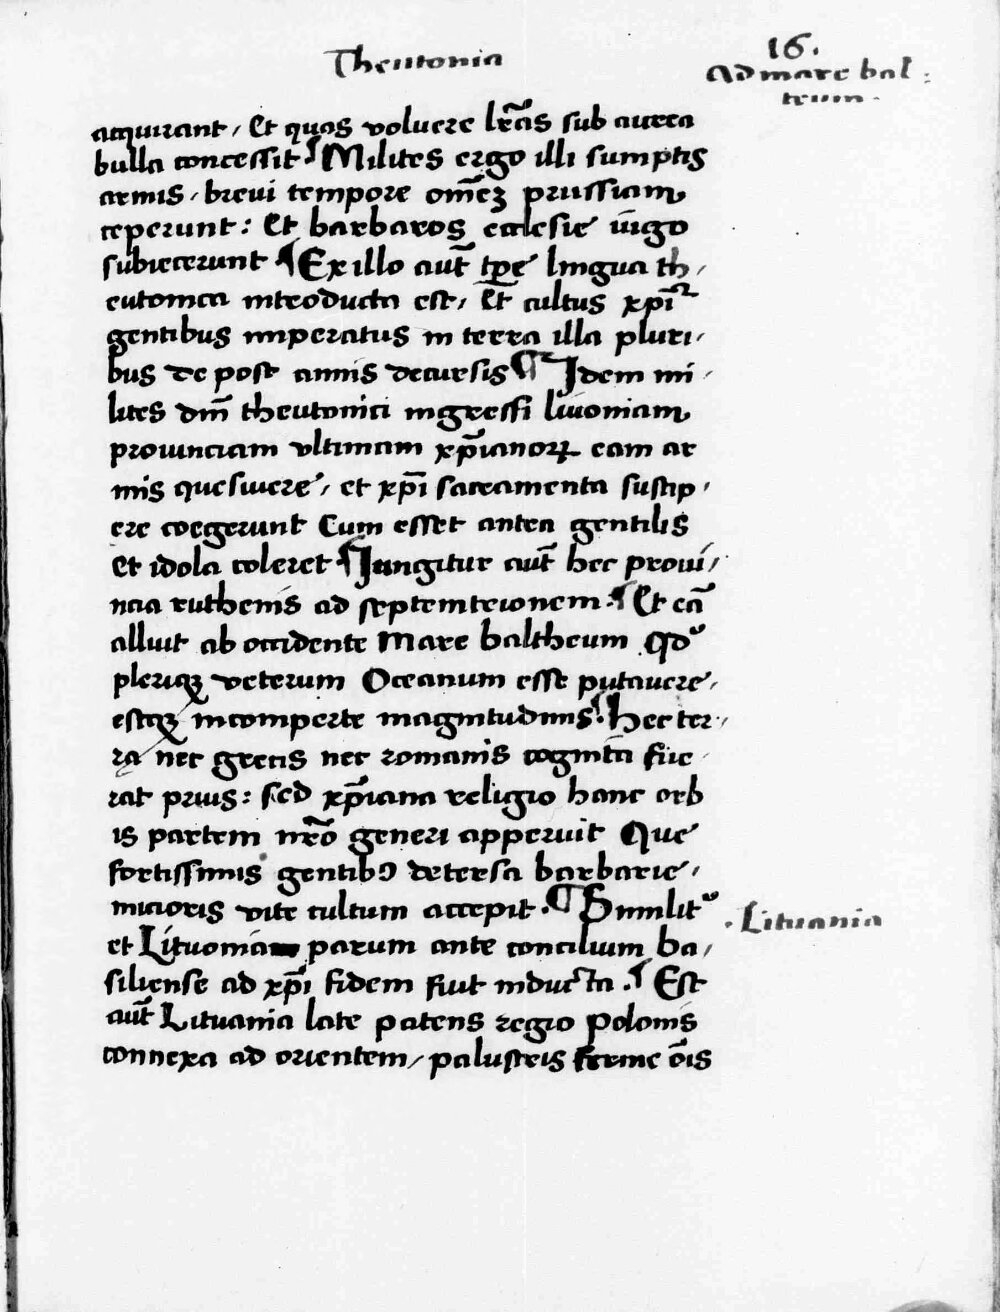 Theutonia
16.
Ad mare bal
trum.
acquirant, Et quas voluere lr̃as sub aurea
bulla concessit ¶ Milites ergo illi sumptis
armis, brevi tempore om̃eʒ prussiam
ceperunt: Et barbaros ecclesie iũgo
subiecerunt ¶ Ex illo aut̃ tp̃re lingua th,
eutonica introducta est, Et cultus xp̃i
gentibus imperatus in terra illa pluri,
bus de post annis decursis ¶ Idem mi,
lites dm̃ theutonici ingressi livoniam
provinciam ultimam xp̃ianoꝝ eam ar
mis quesivere, et xp̃i sacramenta suscip,
ere coegerunt Cum esset antea gentilis
et idola coleret ¶ Jungitur aut̃ hec provi,
ncia ruthenis ad septemtrionem. ¶ Et eã
alluit ab occidente Mare baltheum Qd̃
pleriqꝫ veterum Oceanum esse putavere,
estqꝫ incomperte magnitudinis. ¶ Hec ter,
ra nec grecis nec romanis cognita fue,
rat prius: sed xp̃iana religio hanc orb
is partem nr̃o generi apperuit Que
fortissimis gentibꝰ detersa barbarie,
micioris vite cultum accepit. ¶ Similit̃
et Lituonia parum ante concilium ba,
siliense ad xp̃i fidem fuit inducta. ¶ Est
aut̃ Lituania late patens regio polonis
connexa ad orientem, palustris ferme õis
. Lituania